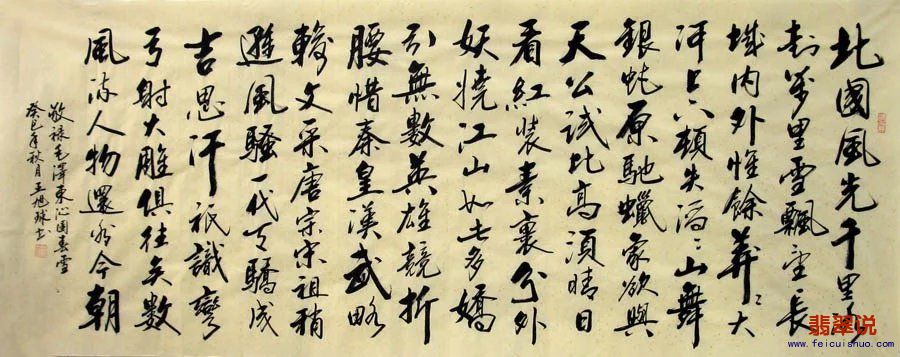 北國風光千里冰
封萬里雪飄望長
城内外惟餘莽〻大
河上下頓失滔〻山舞
銀蛇原馳蠟象欲與
天公試比高須晴日
看紅裝素裹分外
妖嬈江山如此多嬌
引無數英雄競折
腰惜秦皇漢武略
輸文采唐宗宋祖稍
遜風騷一代天驕成
吉思汗衹識彎
弓射大雕俱往矣數
風流人物還看今朝
敬録毛澤東沁園春雪
癸巳年秋月王旭球書
翡翠说
www.feicuishuo.com